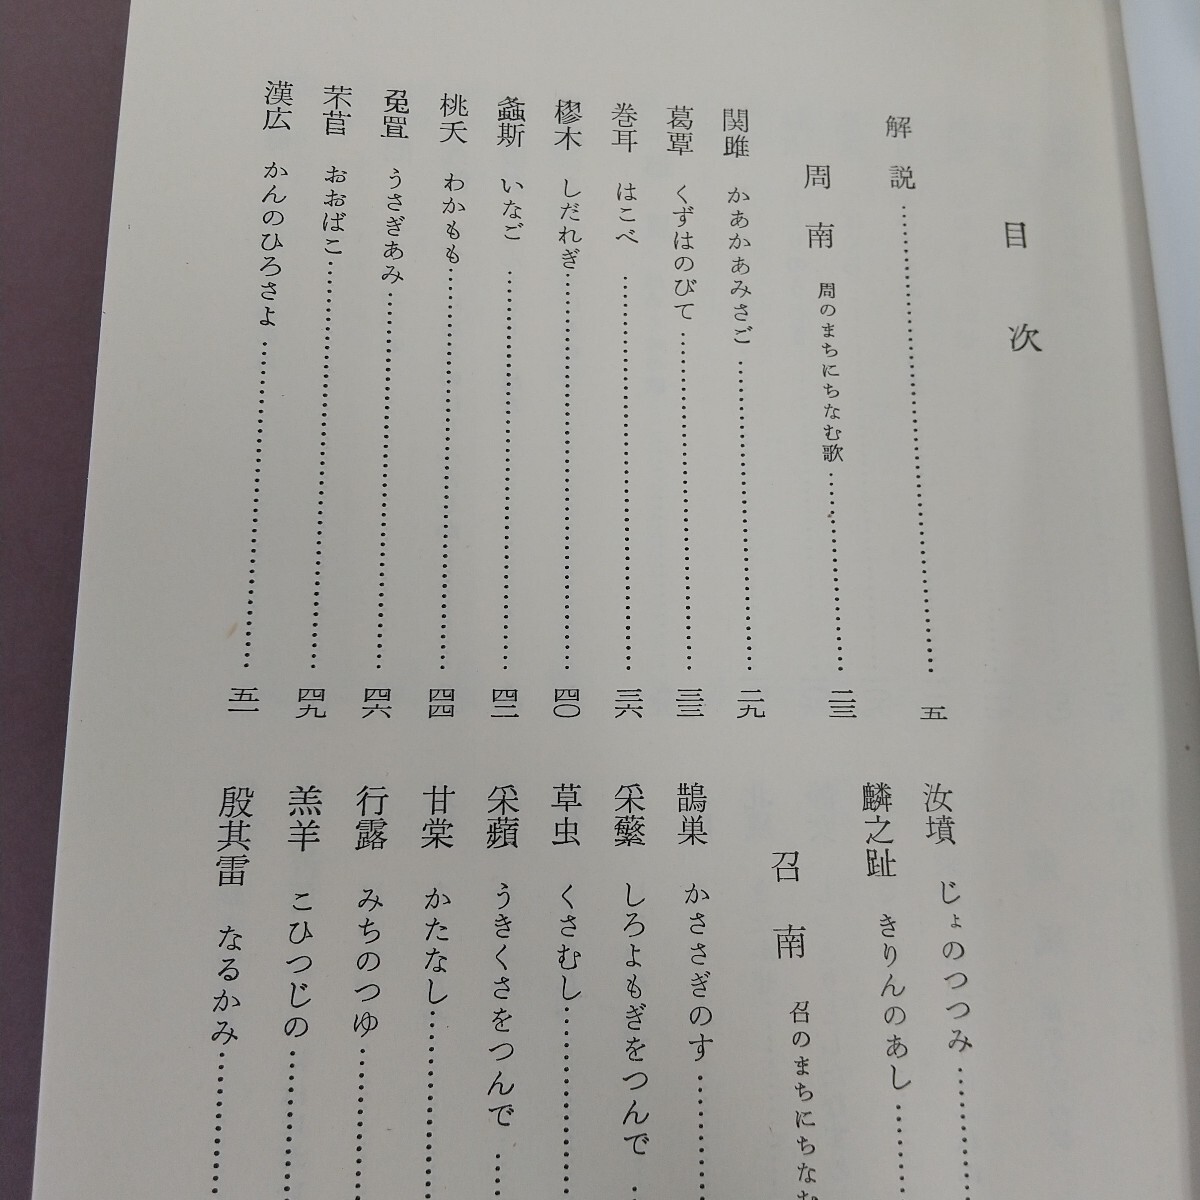 目次
解説……五
周南 周のまちにちなむ歌……二三
関雎 かあかあみさご……二九
葛覃 くずはのびて……三三
巻耳 はこべ……三六
樛木 しだれぎ……四〇
螽斯 いなご……四二
桃夭 わかもも……四四
兔罝 うさぎあみ……四六
芣苢 おおばこ……四九
漢広 かんのひろさよ……五一
汝墳 じょのつつみ……
麟之趾 きりんのあし……
召南 召のまちにちなむ
鵲巣 かささぎのす……
采蘩 しろよもぎをつんで……
草虫 くさむし……
采蘋 うきくさをつんで……
甘棠 かたなし……
行露 みちのつゆ……
羔羊 こひつじの……
殷其雷 なるかみ……